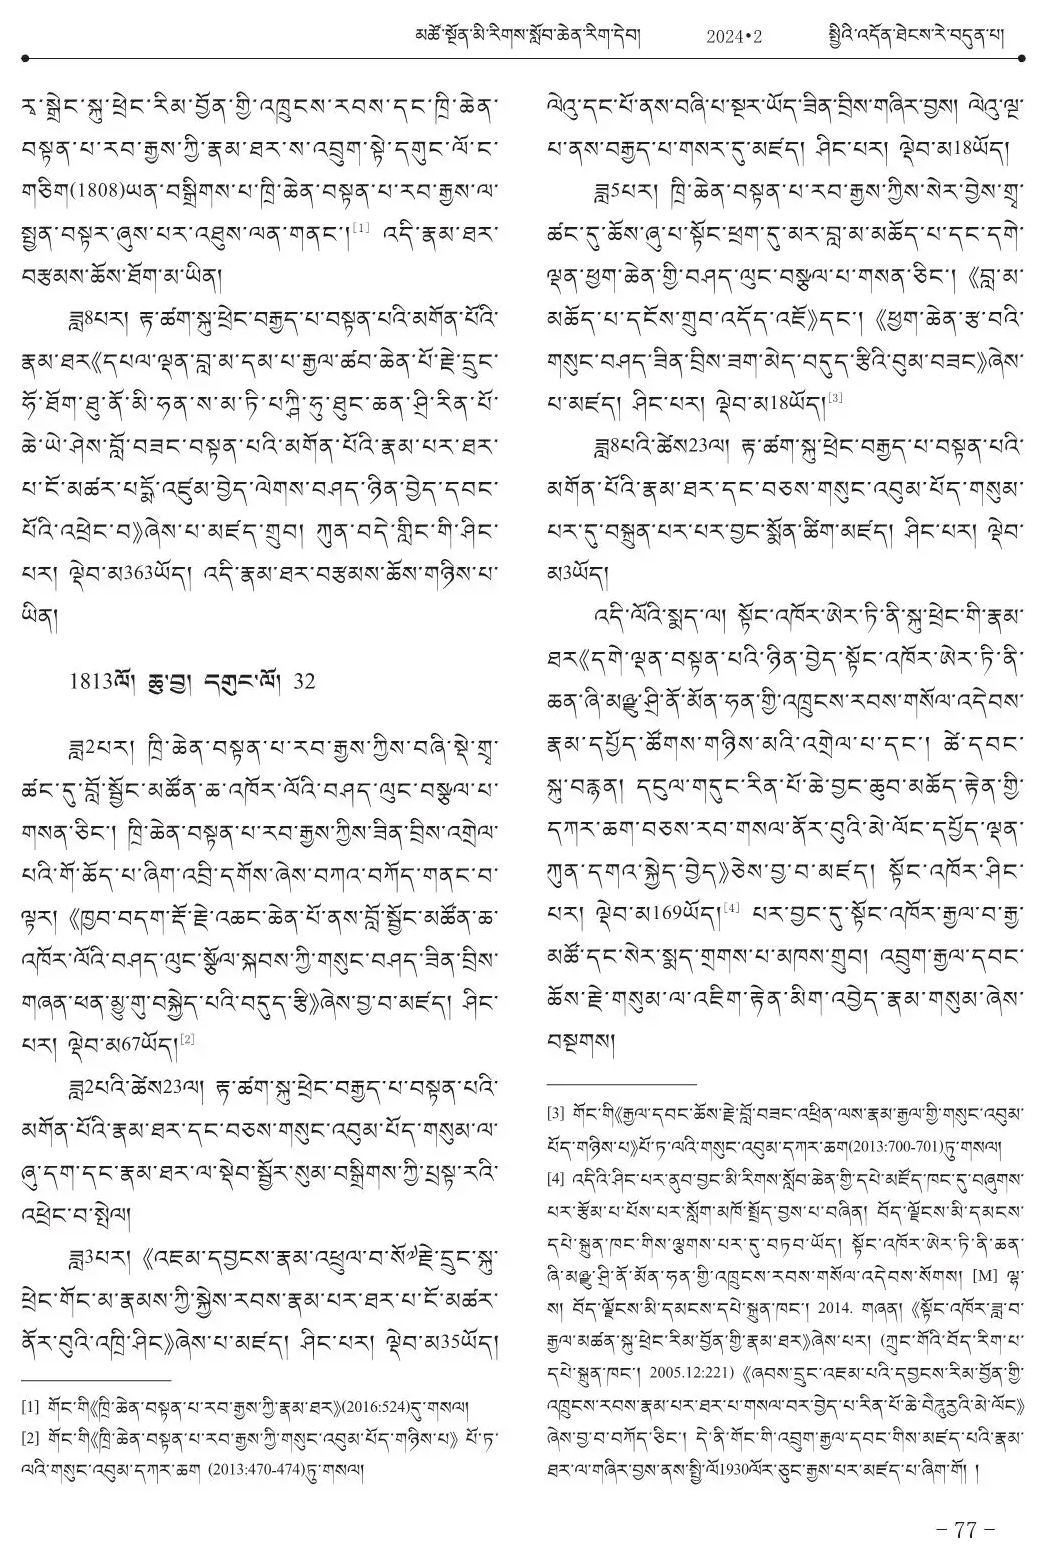 མཚོ་སྔོན་མི་རིགས་སློབ་ཆེན་རིག་དེབ། 2024•2 སྤྱིའི་འདོན་ཐེངས་རེ་བདུན་པ།
རྭ་སྒྲེང་སྐུ་ཕྲེང་རིམ་བྱོན་གྱི་འཁྲུངས་རབས་དང་ཁྲི་ཆེན་
བསྟན་པ་རབ་རྒྱས་ཀྱི་རྣམ་ཐར་ས་འབྲུག་སྟེ་དགུང་ལོ་ང་
གཅིག(1808)ཡན་བསྒྲིགས་པ་ཁྲི་ཆེན་བསྟན་པ་རབ་རྒྱས་ལ་
སྤྱན་བསྟར་ཞུས་པར་འཐུས་ལན་གནང་།[1] འདི་རྣམ་ཐར་
བརྩམས་ཆོས་ཐོག་མ་ཡིན།
ཟླ8པར། རྟ་ཚག་སྐུ་ཕྲེང་བརྒྱད་པ་བསྟན་པའི་མགོན་པོའི་
རྣམ་ཐར《དཔལ་ལྡན་བླ་མ་དམ་པ་རྒྱལ་ཚབ་ཆེན་པོ་རྗེ་དྲུང་
ཧོ་ཐོག་ཐུ་ནོ་མི་ཧན་ས་མ་ཏི་པཀྵི་ཧུ་ཐུང་ཆན་ཤྲི་རིན་པོ་
ཆེ་ཡེ་ཤེས་བློ་བཟང་བསྟན་པའི་མགོན་པོའི་རྣམ་པར་ཐར་
པ་ངོ་མཚར་པདྨོ་འཛུམ་བྱེད་ལེགས་བཤད་ཉིན་བྱེད་དབང་
པོའི་འཕྲེང་བ》ཞེས་པ་མཛད་གྲུབ། ཀུན་བདེ་གླིང་གི་ཤིང་
པར། ལྡེབ་མ363ཡོད། འདི་རྣམ་ཐར་བརྩམས་ཆོས་གཉིས་པ་
ཡིན།
1813ལོ། ཆུ་བྱ། དགུང་ལོ། 32
ཟླ2པར། ཁྲི་ཆེན་བསྟན་པ་རབ་རྒྱས་ཀྱིས་བཞི་སྡེ་གྲྭ་
ཚང་དུ་བློ་སྦྱོང་མཚོན་ཆ་འཁོར་ལོའི་བཤད་ལུང་བསྩལ་པ་
གསན་ཅིང་། ཁྲི་ཆེན་བསྟན་པ་རབ་རྒྱས་ཀྱིས་ཟིན་བྲིས་འགྲེལ་
པའི་གོ་ཆོད་པ་ཞིག་འབྲི་དགོས་ཞེས་བཀའ་བཀོད་གནང་བ་
ལྟར། 《ཁྱབ་བདག་རྡོ་རྗེ་འཆང་ཆེན་པོ་ནས་བློ་སྦྱོང་མཚོན་ཆ་
འཁོར་ལོའི་བཤད་ལུང་སྩོལ་སྐབས་ཀྱི་གསུང་བཤད་ཟིན་བྲིས་
གཞན་ཕན་མྱུ་གུ་བསྐྱེད་པའི་བདུད་རྩི》ཞེས་བྱ་བ་མཛད། ཤིང་
པར། ལྡེབ་མ67ཡོད།[2]
ཟླ2པའི་ཚེས23ལ། རྟ་ཚག་སྐུ་ཕྲེང་བརྒྱད་པ་བསྟན་པའི་
མགོན་པོའི་རྣམ་ཐར་དང་བཅས་གསུང་འབུམ་པོད་གསུམ་ལ་
ཞུ་དག་དང་རྣམ་ཐར་ལ་སྡེབ་སྦྱོར་སུམ་བསྒྲིགས་ཀྱི་པྲསྟ་རའི་
འཕྲེང་བ་སྤེལ།
ཟླ3པར། 《འཇམ་དབྱངས་རྣམ་འཕྲུལ་བ་སོ྅རྗེ་དྲུང་སྐུ་
ཕྲེང་གོང་མ་རྣམས་ཀྱི་སྐྱེས་རབས་རྣམ་པར་ཐར་པ་ངོ་མཚར་
ནོར་བུའི་འཁྲི་ཤིང》ཞེས་པ་མཛད། ཤིང་པར། ལྡེབ་མ35ཡོད།
[1] གོང་གི《ཁྲི་ཆེན་བསྟན་པ་རབ་རྒྱས་ཀྱི་རྣམ་ཐར》(2016:524)དུ་གསལ།
[2] གོང་གི《ཁྲི་ཆེན་བསྟན་པ་རབ་རྒྱས་ཀྱི་གསུང་འབུམ་པོད་གཉིས་པ》 པོ་ཏ་
ལའི་གསུང་འབུམ་དཀར་ཆག (2013:470-474)ཏུ་གསལ།
ལེའུ་དང་པོ་ནས་བཞི་པ་སྔར་ཡོད་ཟིན་བྲིས་གཞིར་བྱས། ལེའུ་ལྔ་
པ་ནས་བརྒྱད་པ་གསར་དུ་མཛད། ཤིང་པར། ལྡེབ་མ18ཡོད།
ཟླ5པར། ཁྲི་ཆེན་བསྟན་པ་རབ་རྒྱས་ཀྱིས་སེར་བྱེས་གྲྭ་
ཚང་དུ་ཆོས་ཞུ་པ་སྟོང་ཕྲག་དུ་མར་བླ་མ་མཆོད་པ་དང་དགེ་
ལྡན་ཕྱག་ཆེན་གྱི་བཤད་ལུང་བསྩལ་པ་གསན་ཅིང་། 《བླ་མ་
མཆོད་པ་དངོས་གྲུབ་འདོད་འཇོ》དང་། 《ཕྱག་ཆེན་རྩ་བའི་
གསུང་བཤད་ཟིན་བྲིས་ཟག་མེད་བདུད་རྩིའི་བུམ་བཟང》ཞེས་
པ་མཛད། ཤིང་པར། ལྡེབ་མ18ཡོད།[3]
ཟླ8པའི་ཚེས23ལ། རྟ་ཚག་སྐུ་ཕྲེང་བརྒྱད་པ་བསྟན་པའི་
མགོན་པོའི་རྣམ་ཐར་དང་བཅས་གསུང་འབུམ་པོད་གསུམ་
པར་དུ་བསྐྲུན་པར་པར་བྱང་སྨོན་ཚིག་མཛད། ཤིང་པར། ལྡེབ་
མ3ཡོད།
འདི་ལོའི་སྨད་ལ། སྟོང་འཁོར་ཨེར་ཏི་ནི་སྐུ་ཕྲེང་གི་རྣམ་
ཐར《དགེ་ལྡན་བསྟན་པའི་ཉིན་བྱེད་སྟོང་འཁོར་ཨེར་ཏི་ནི་
ཆན་ཞི་མཉྫུ་ཤྲི་ནོ་མོན་ཧན་གྱི་འཁྲུངས་རབས་གསོལ་འདེབས་
རྣམ་དཔྱོད་ཚོགས་གཉིས་མའི་འགྲེལ་པ་དང་། ཚེ་དབང་
སྐུ་བརྙན། དངུལ་གདུང་རིན་པོ་ཆེ་བྱང་ཆུབ་མཆོད་རྟེན་གྱི་
དཀར་ཆག་བཅས་རབ་གསལ་ནོར་བུའི་མེ་ལོང་དཔྱོད་ལྡན་
ཀུན་དགའ་སྐྱེད་བྱེད》ཅེས་བྱ་བ་མཛད། སྟོང་འཁོར་ཤིང་
པར། ལྡེབ་མ169ཡོད།[4] པར་བྱང་དུ་སྟོང་འཁོར་རྒྱལ་བ་རྒྱ་
མཚོ་དང་སེར་སྨད་གྲགས་པ་མཁས་གྲུབ། འབྲུག་རྒྱལ་དབང་
ཆོས་རྗེ་གསུམ་ལ་འཇིག་རྟེན་མིག་འབྱེད་རྣམ་གསུམ་ཞེས་
བསྔགས།
[3] གོང་གི《རྒྱལ་དབང་ཆོས་རྗེ་བློ་བཟང་འཕྲིན་ལས་རྣམ་རྒྱལ་གྱི་གསུང་འབུམ་
པོད་གཉིས་པ》པོ་ཏ་ལའི་གསུང་འབུམ་དཀར་ཆག(2013:700-701)ཏུ་གསལ།
[4] འདིའི་ཤིང་པར་ནུབ་བྱང་མི་རིགས་སློབ་ཆེན་གྱི་དཔེ་མཛོད་ཁང་དུ་བཞུགས་
པར་རྩོམ་པ་པོས་པར་སློག་མཁོ་སྤྲོད་བྱས་པ་བཞིན། བོད་ལྗོངས་མི་དམངས་
དཔེ་སྐྲུན་ཁང་གིས་ལྕགས་པར་དུ་བཏབ་ཡོད། སྟོང་འཁོར་ཨེར་ཏི་ནི་ཆན་
ཞི་མཉྫུ་ཤྲི་ནོ་མོན་ཧན་གྱི་འཁྲུངས་རབས་གསོལ་འདེབས་སོགས། [M] ལྷ་
ས། བོད་ལྗོངས་མི་དམངས་དཔེ་སྐྲུན་ཁང་། 2014. གཞན། 《སྟོང་འཁོར་ཟླ་བ་
རྒྱལ་མཚན་སྐུ་ཕྲེང་རིམ་བྱོན་གྱི་རྣམ་ཐར》ཞེས་པར། (ཀྲུང་གོའི་བོད་རིག་པ་
དཔེ་སྐྲུན་ཁང་། 2005.12:221) 《ཞབས་དྲུང་འཇམ་པའི་དབྱངས་རིམ་བྱོན་གྱི་
འཁྲུངས་རབས་རྣམ་པར་ཐར་པ་གསལ་བར་བྱེད་པ་རིན་པོ་ཆེ་བཻཌཱུརྱའི་མེ་ལོང》
ཞེས་བྱ་བ་བཀོད་ཅིང་། དེ་ནི་གོང་གི་འབྲུག་རྒྱལ་དབང་གིས་མཛད་པའི་རྣམ་
ཐར་ལ་གཞིར་བྱས་ནས་སྤྱི་ལོ1930ལོར་ཅུང་རྒྱས་པར་མཛད་པ་ཞིག་གོ། །
– 77 –